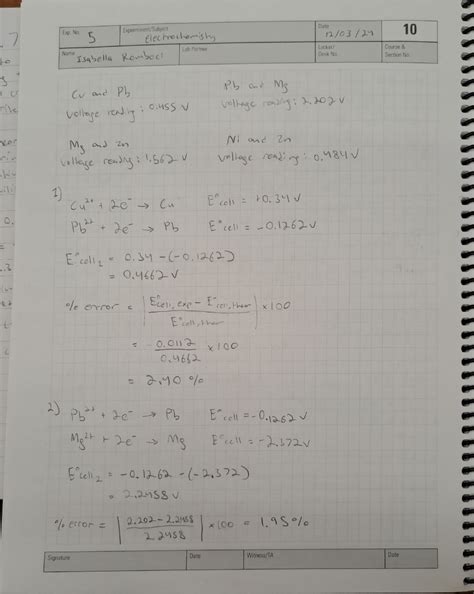 Exp. No. 5 Experiment/Subject electrochemistry Date 12/03/24 10
Name Isabella Lab Partner Locker/Desk No. Course & Section No.
Cu and Pb Pb and Mg
voltage reading: 0.455 V voltage reading: 2.202 V
Mg and Zn Ni and Zn
voltage reading: 1.562 V voltage reading: 0.484 V
1)
Cu²⁺ + 2e⁻ → Cu E°cell = +0.34 V
Pb²⁺ + 2e⁻ → Pb E°cell = -0.1262 V
E°cell₂ = 0.34 - (-0.1262)
= 0.4662 V
% error = | E°cell,exp - E°cell,theor / E°cell,theor | × 100
= 0.0112 / 0.4662 × 100
= 2.40 %
2) Pb²⁺ + 2e⁻ → Pb E°cell = -0.1262 V
Mg²⁺ + 2e⁻ → Mg E°cell = -2.372 V
E°cell₂ = -0.1262 - (-2.372)
= 2.2458 V
% error = | 2.202 - 2.2458 / 2.2458 | × 100 = 1.95 %
Signature Date Witness/TA Date